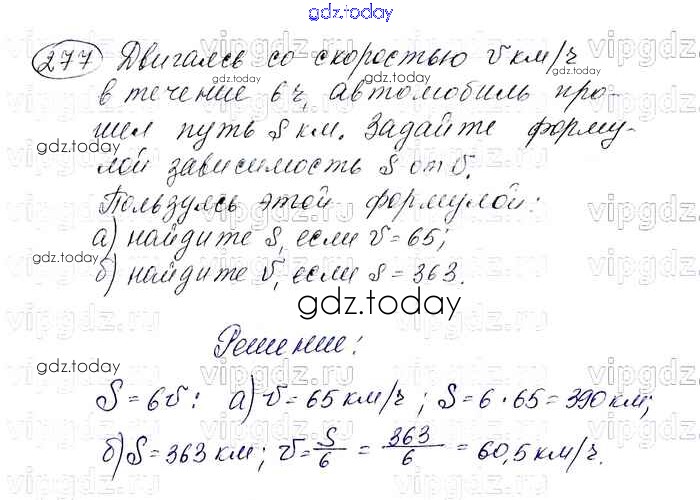 gdz.today
277 Двигаясь со скоростью v км/ч
в течение 6 ч, автомобиль про-
шел путь S км. Задайте форму-
лой зависимость S от v.
Пользуясь этой формулой:
а) найдите S, если v = 65;
б) найдите v, если S = 363.
gdz.today
Решение:
S = 6v: а) v = 65 км/ч ; S = 6 · 65 = 390 км;
б) S = 363 км; v = S/6 = 363/6 = 60,5 км/ч.